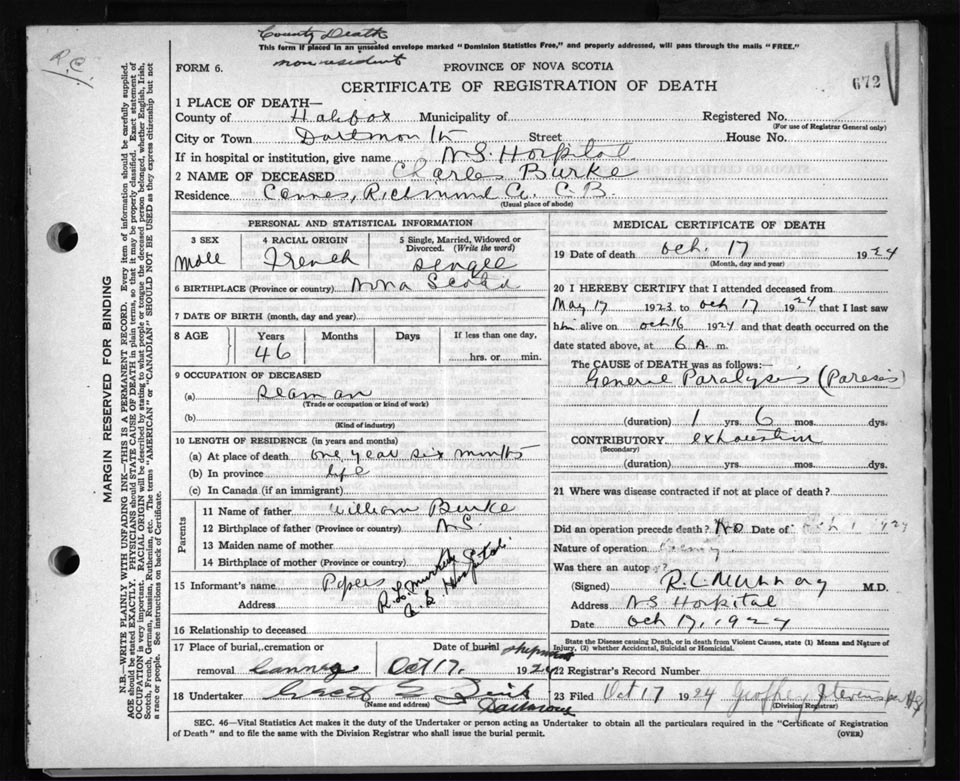 County Death
This form if placed in an unsealed envelope marked "Dominion Statistics Free," and properly addressed, will pass through the mails "FREE."
R.C.
non resident
FORM 6. PROVINCE OF NOVA SCOTIA
CERTIFICATE OF REGISTRATION OF DEATH
672
1 PLACE OF DEATH—
County of Halifax Municipality of Registered No.
(For use of Registrar General only)
City or Town Dartmouth Street House No.
If in hospital or institution, give name N.S. Hospital
2 NAME OF DECEASED Charles Burke
Residence Cannes, Richmond Co. C.B.
(Usual place of abode)
MARGIN RESERVED FOR BINDING
N.B.—WRITE PLAINLY WITH UNFADING INK—THIS IS A PERMANENT RECORD. Every item of information should be carefully supplied.
AGE should be stated EXACTLY. PHYSICIANS should STATE CAUSE OF DEATH in plain terms, so that it may be properly classified. Exact statement of
OCCUPATION is very important. RACIAL ORIGIN will be described by stating to what people or tongue the deceased person belonged, whether English, Irish,
Scotch, French, German, Russian, Ruthenian, etc. The terms "AMERICAN" or "CANADIAN" SHOULD NOT BE USED as they express citizenship but not
a race or people. See instructions on back of Certificate.
PERSONAL AND STATISTICAL INFORMATION
3 SEX 4 RACIAL ORIGIN 5 Single, Married, Widowed or
Divorced. (Write the word)
Male French Single
6 BIRTHPLACE (Province or country) Nova Scotia
7 DATE OF BIRTH (month, day and year)
8 AGE Years Months Days If less than one day,
46 hrs. or min.
9 OCCUPATION OF DECEASED
(a) Seaman
(Trade or occupation or kind of work)
(b)
(Kind of industry)
10 LENGTH OF RESIDENCE (in years and months)
(a) At place of death one year six months
(b) In province life
(c) In Canada (if an immigrant)
Parents
11 Name of father William Burke
12 Birthplace of father (Province or country) N.S.
13 Maiden name of mother
14 Birthplace of mother (Province or country)
15 Informant's name Papers
Address
N.S. Hospital
16 Relationship to deceased
17 Place of burial, cremation or Date of burial shipment
removal Cannes Oct 17. 1924
18 Undertaker
(Name and address)
Dartmouth
MEDICAL CERTIFICATE OF DEATH
19 Date of death Oct. 17 1924
(Month, day and year)
20 I HEREBY CERTIFY that I attended deceased from
May 17 1923 to Oct 17 1924 that I last saw
him alive on Oct 16 1924 and that death occurred on the
date stated above, at 6 A. m.
The CAUSE of DEATH was as follows:—
General Paralysis (Paresis)
(duration) 1 yrs. 6 mos. dys.
CONTRIBUTORY exhaustion
(Secondary)
(duration) yrs. mos. dys.
21 Where was disease contracted if not at place of death?
Did an operation precede death? No Date of
Nature of operation
Was there an autopsy?
(Signed) R.C. Murray M.D.
Address N.S Hospital
Date Oct 17, 1924
State the Disease causing Death, or in death from Violent Causes, state (1) Means and Nature of
Injury, (2) whether Accidental, Suicidal or Homicidal.
22 Registrar's Record Number
23 Filed Oct 17 1924 Geoffrey Stevens
(Division Registrar)
SEC. 46—Vital Statistics Act makes it the duty of the Undertaker or person acting as Undertaker to obtain all the particulars required in the "Certificate of Registration
of Death" and to file the same with the Division Registrar who shall issue the burial permit. (OVER)